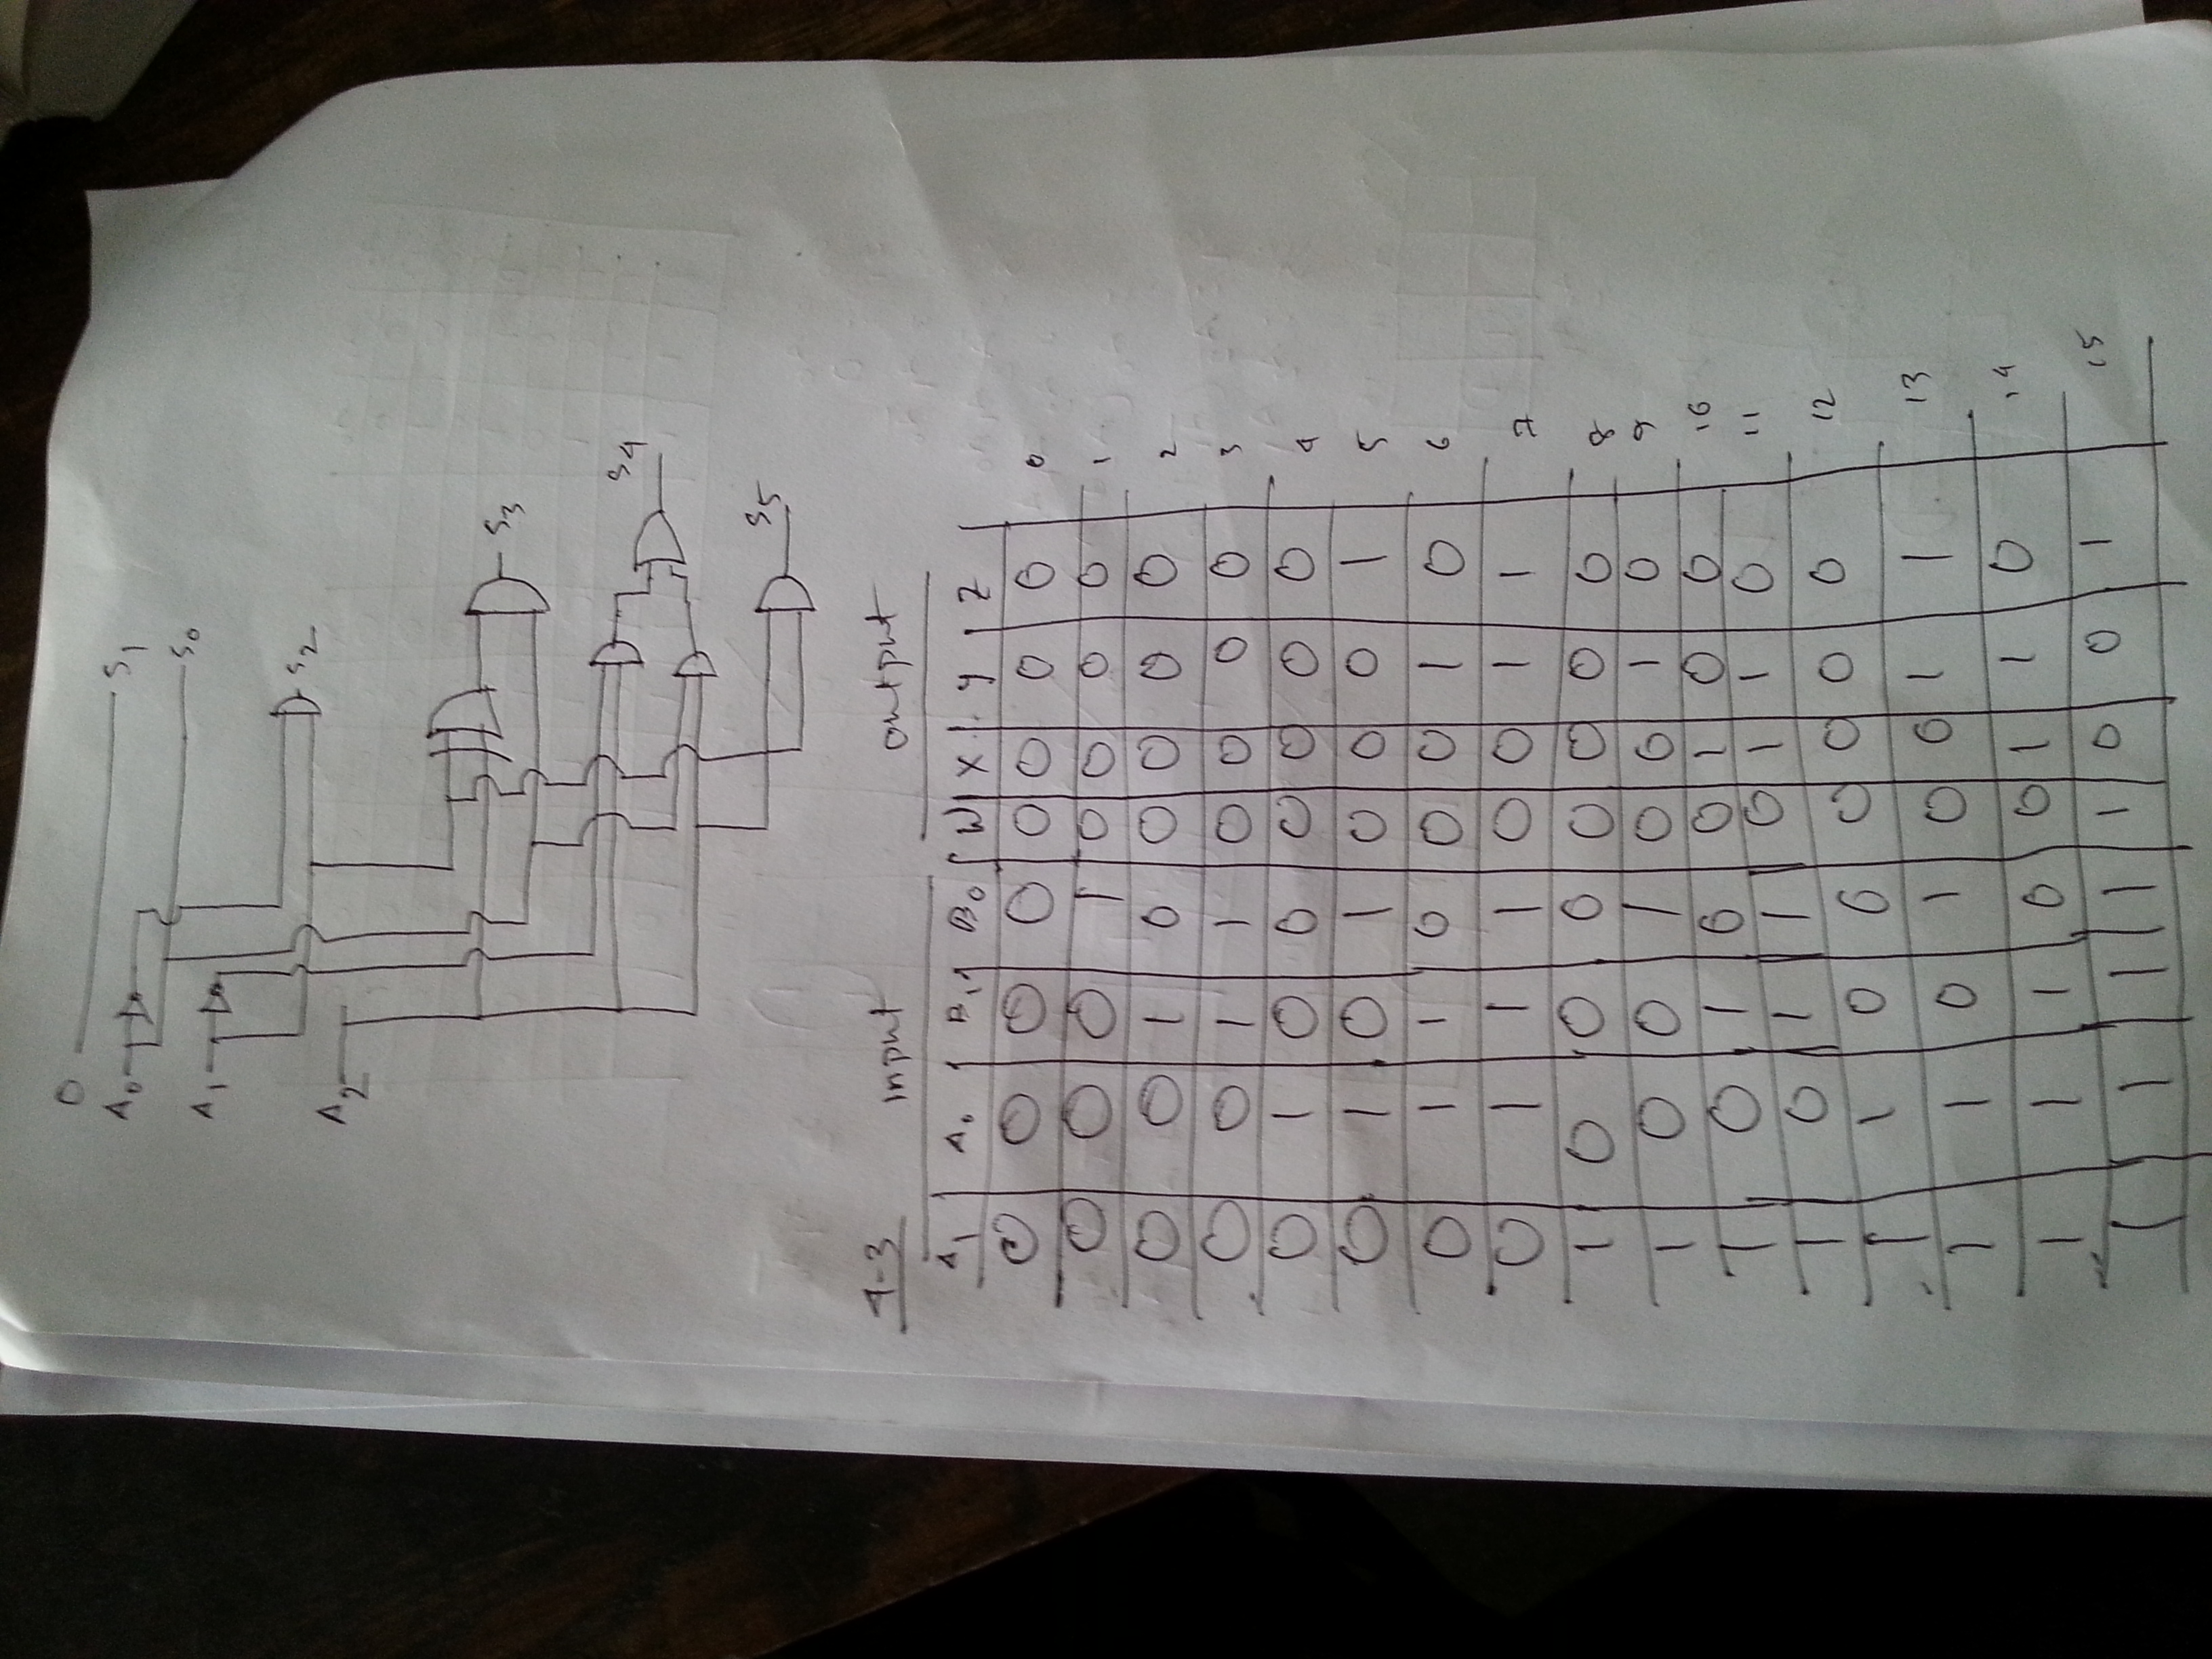 0 S1
A0
S0
A1
S2
A2
S3
S4
S5
4-3 input output
A1 A0 B1 B0 W X Y Z
0 0 0 0 0 0 0 0 0
0 0 0 1 0 0 0 0 1
0 0 1 0 0 0 0 0 2
0 0 1 1 0 0 0 0 3
0 1 0 0 0 0 0 0 4
0 1 0 1 0 0 0 1 5
0 1 1 0 0 0 1 0 6
0 1 1 1 0 0 1 1 7
1 0 0 0 0 0 0 0 8
1 0 0 1 0 0 1 0 9
1 0 1 0 0 1 0 0 10
1 0 1 1 0 1 1 0 11
1 1 0 0 0 0 0 0 12
1 1 0 1 0 0 1 1 13
1 1 1 0 0 1 1 0 14
1 1 1 1 1 0 0 1 15